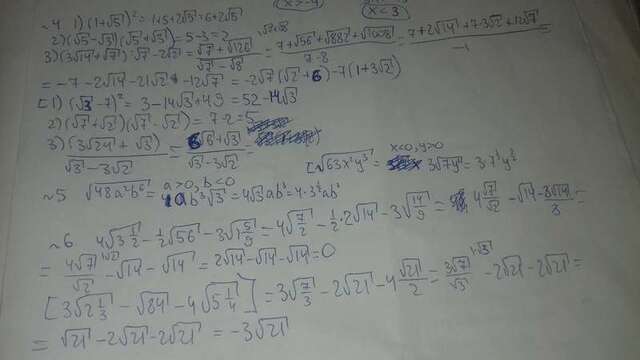 x > -4
x ≤ 3
~4 1) (1+√5)² = 1+5+2√5 = 6+2√5
2) (√5-√3)(√5+√3) = 5-3 = 2
3) (3√14+√7) : √7-2√2) = (√7+√126)/(√7-√8) = (7+√56+√882+√1008)/(7-8) = (7+2√14+7·3√2+12√7)/(-1)
= -7-2√14-21√2-12√7 = -2√7(√2+6)-7(1+3√2)
[1) (√3-7)² = 3-14√3+49 = 52-14√3
2) (√7+√2)(√7-√2) = 7-2=5
3) (3√24+√3)/(√3-3√2) = (6√6+√3)/(√3-3√2) =
x<0, y>0
[√63x²y³ = 3√7y⁴ = 3·7
a>0, b<0
~5 √48a²b⁶ = 4ab³√3 = 4√3ab³ = 4·3 ab³
~6 4√3 1/2 - 1/2√56 - 3√1 5/9 = 4√7/2 - 1/2·2√14 - 3√14/9 = 4√7/√2 - √14 - 3√14/3 =
= 4√7/√2 - √14 - √14 = 2√14-√14-√14=0
[3√2 1/3 - √84 - 4√5 1/4] = 3√7/3 - 2√21 - 4√21/2 = 3√7/√3 - 2√21 - 2√21 =
= √21 - 2√21 - 2√21 = -3√21